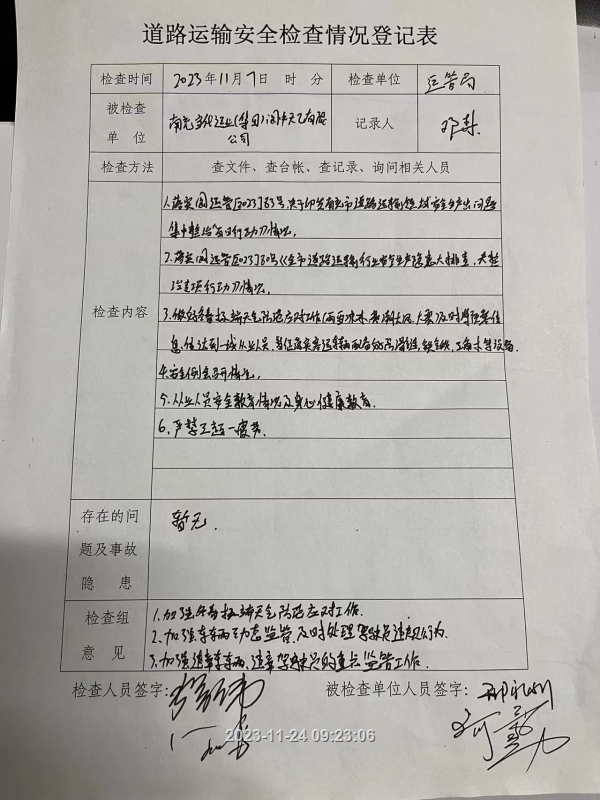 道路运输安全检查情况登记表
检查时间 2023年11月7日 时 分 检查单位 运管局
被检查
单位 南充当代运业(集团)阆中天乙有限
公司 记录人 邓
检查方法 查文件、查台帐、查记录、询问相关人员
检查内容
1.落实阆运管[2023]83号 关于印发南充市道路运输领域安全生产突出问题
集中整治"百日行动方案情况。
2.落实阆运管[2023]80号《全市道路运输行业安全生产隐患大排查、大整
治专项行动方案情况。
3.做好冬季极端天气防范应对工作(雨雪冰冻 寒潮大风、大雾)及时将预警信
息传达到一线从业人员,督促落实客运车辆配备防滑链,三角木等设备。
4.安全例会召开情况。
5.从业人员安全教育情况及身心健康教育。
6.严禁三超一疲劳。
存在的问
题及事故
隐患
暂无.
检查组
意见
1.加强冬季极端天气防范应对工作.
2.加强车辆动态监管及时处理驾驶员违规行为.
3.加强违章车辆、违章驾驶员的重点监管工作.
检查人员签字:
被检查单位人员签字:
2023-11-24 09:23:06